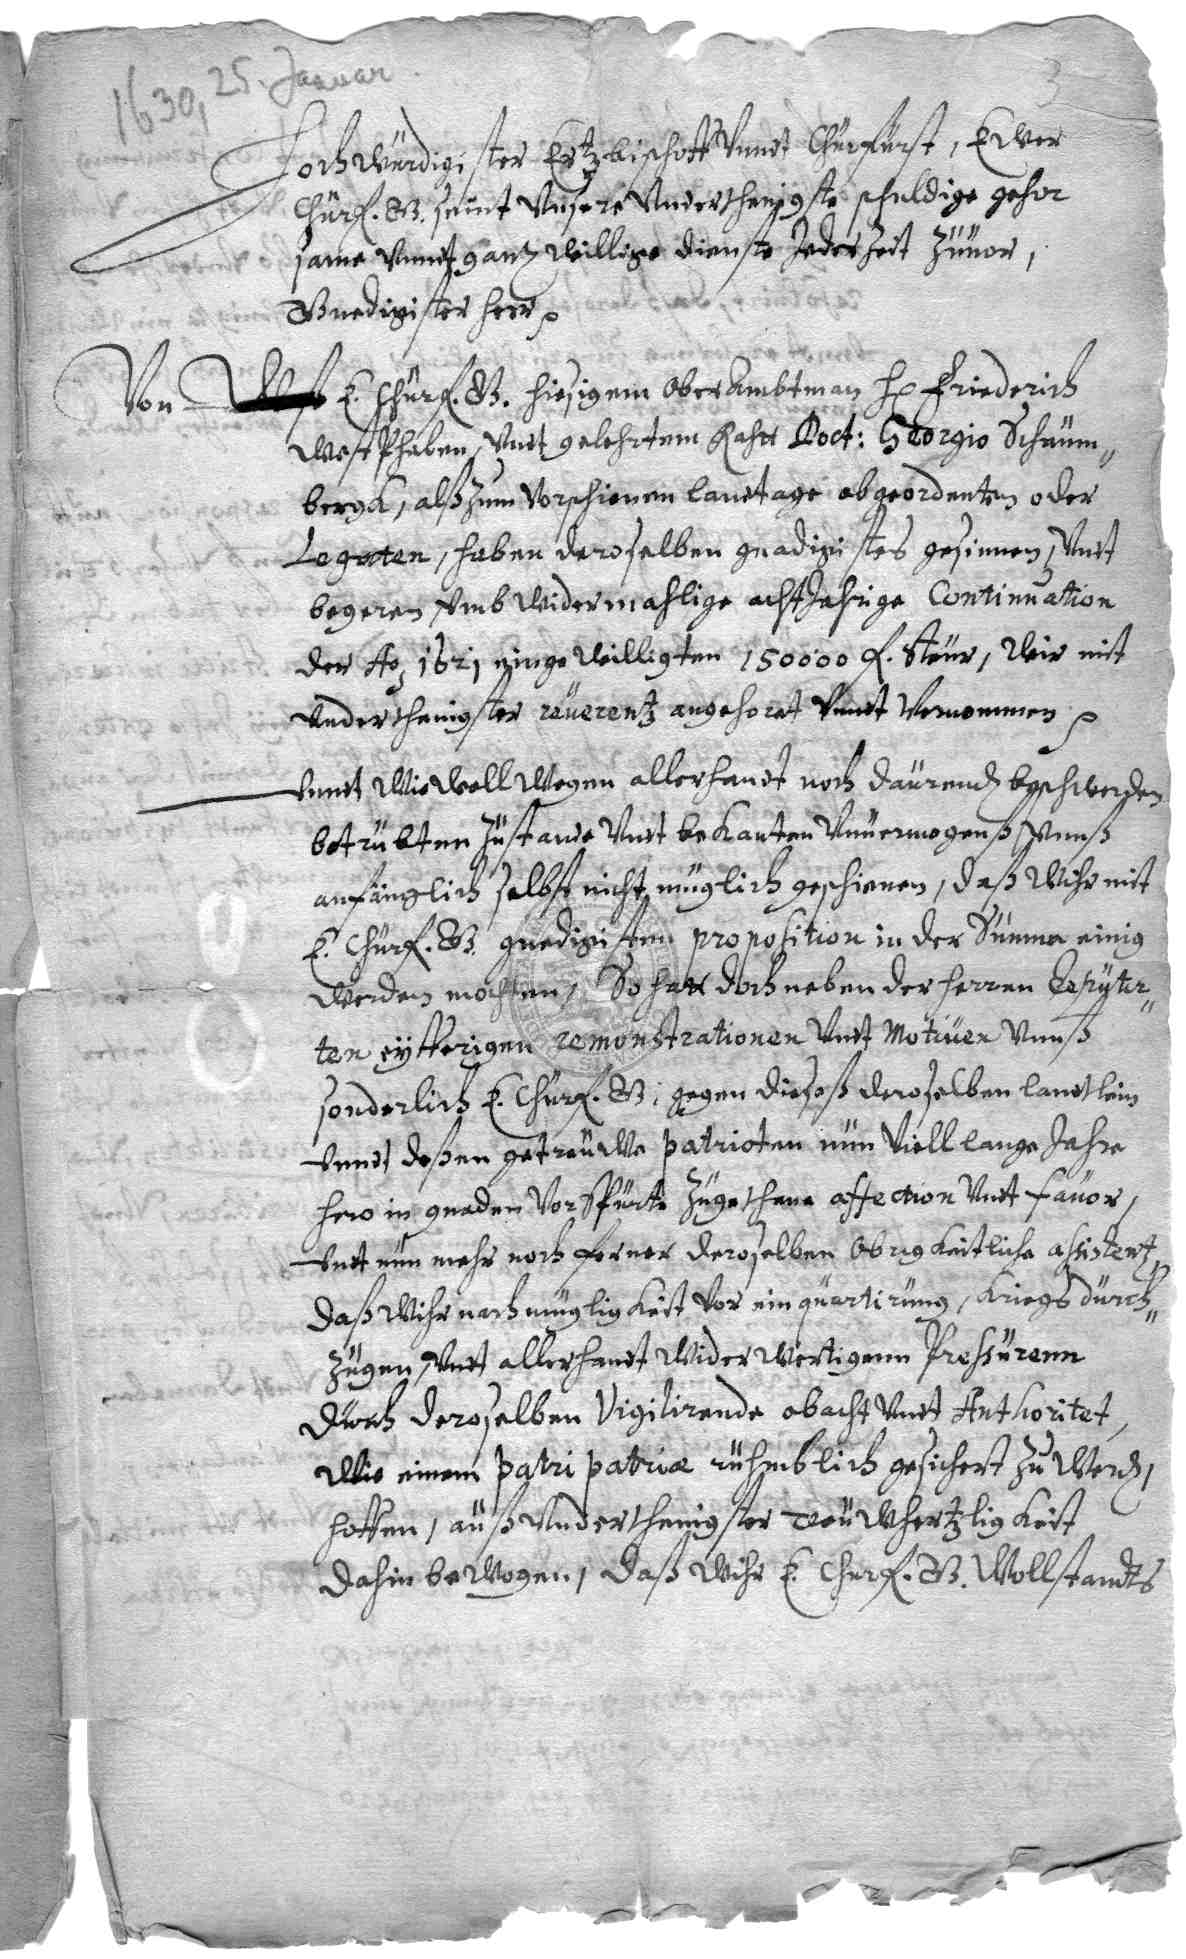 1630, 25. Januar
3
Hochwürdigister Ertzbischoff Vnndt Chürfürst, Ewer
Chürf. G. seint Vnsere Vnderthenigste schuldige gehor
same Vnndt gantz willige dienste Jederzeit züuor,
Gnedigister herr
Von E. Chürf. G. hiesigem OberAmbtman H Friederich
Westphalen, Vndt gelehrtem Raht Doct: Georgio Schaum„
bergk, alß zum Vorschienen landtage abgeordenten oder
Legaten, haben deroselben gnadigistes gesinnen, Vndt
begeren Vmb widermahlige acht Jahrige Continuation
der Ao 1621 eingewilligten 150000 f. Steur, Wir mit
Vnderthenigster reuerentz angehoret Vnndt Vernommen
Vnndt Wiewoll Wegen allerhandt noch daürend beschwerden
betrübten züstandt Vndt bekanten Vnuermogenß, Vnnß
anfänglich selbst nicht müglich geschienen, daß Wihr mit
E. Chürf. G. gnedigisten proposition in der Summa einig
werden mochten, So hatt doch neben der herren Deputir„
ten eyfferigen remonstrationen Vndt Motiuen Vnnß
sonderlich E. Chürf. G. gegen dieseß deroselben landtlein
Vnndt deßen getreüwe patrioten nün Viell lange Jahre
hero in gnaden Vorspürte zügethane affection Vndt fauor,
Vndt nün mehr noch ferner deroselben Obrigkeitliche assistentz,
daß Wihr nach mügligkeit Vor einquartirüng, Kriegs dürch„
zügen, Vndt allerhandt widerwertigenn Pressürenn
Durch deroselben Vigilirende obacht Vndt Authoritet,
Wie einem patri patriæ rühmblich gesichert zu werd,
hoffen, auß Vnderthenigster treüwhertzligkeit
dahin bewogen, daß Wihr E. Churf. G. Wollstandts